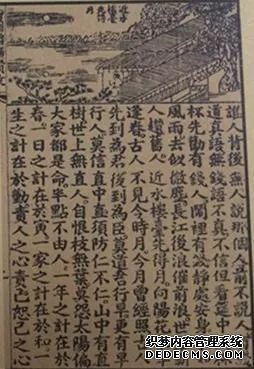 近水
樓臺
先得
月
誰人背後無人說那個人前不說人
道真語無錢語不真不信但看筵
杯先勸有錢人閙裡有錢靜處安
風雨去似微塵長江後浪催前浪世
人趲舊人近水樓臺先得月向陽花
逢春古人不見今時月今月曾經照古人
先到為君後到為臣莫道吾行早更有早
行人莫信直中直須防仁不仁山中有直
樹世上無直人自恨枝無葉莫怨太陽偏
大家都是命半點不由人一年之計在於
春一日之計在於寅一家之計在於和一
生之計在於勤責人之心責己恕己之心